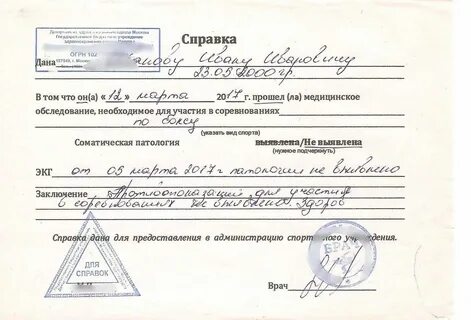 Департамент здравоохранения города Москвы
Государственное бюджетное учреждение
здравоохранения
ОГРН 102
Справка
Дана Иванову Ивану Ивановичу
23.05.2000гр.
В том что он(а) «12» марта 2017г. прошел (ла) медицинское
обследование, необходимое для участия в соревнованиях
по боксу
(указать вид спорта)
Соматическая патология выявлена/Не выявлена
(нужное подчеркнуть)
ЭКГ от 05 марта 2017г патологии не выявлено
Заключение Противопоказаний для участия
в соревнованиях не выявлено. Здоров
Справка дана для предоставления в администрацию спортивного учреждения.
ДЛЯ
СПРАВОК
ВРАЧ
Врач